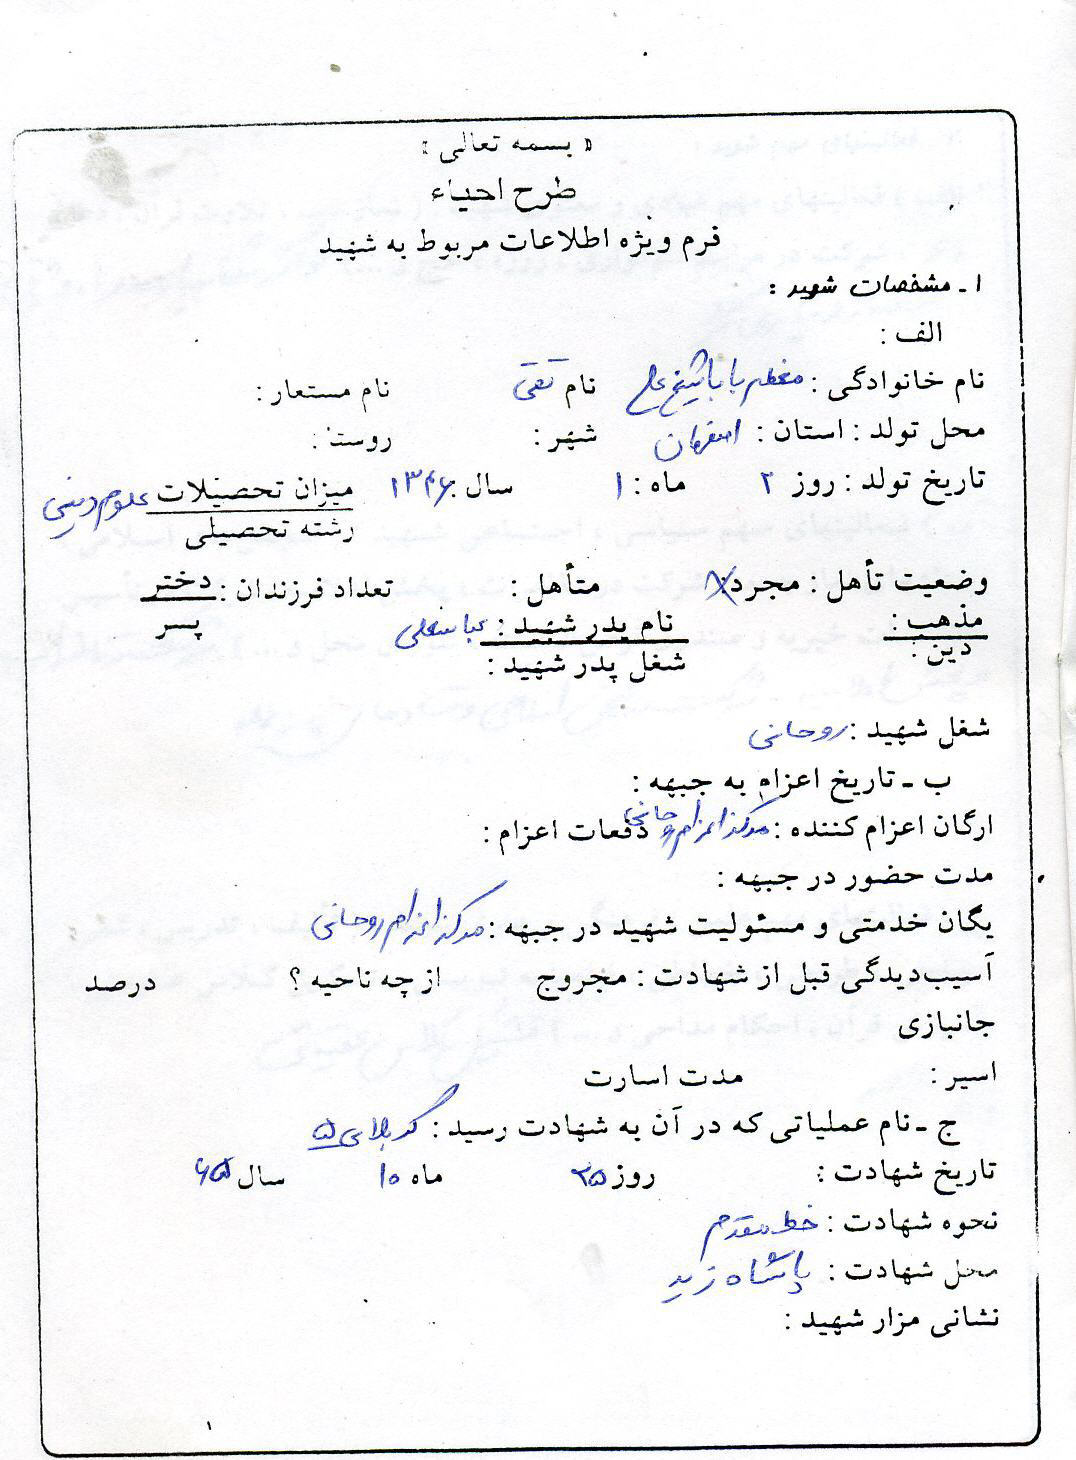 « بسمه تعالی »
طرح احیاء
فرم ویژه اطلاعات مربوط به شهید
۱ـ مشخصات شهید :
الف :
نام خانوادگی : معظم باباشیخعلی نام تقی نام مستعار :
محل تولد : استان : اصفهان شهر : روستا :
تاریخ تولد : روز ۲ ماه : ۱ سال : ۱۳۴۶ میزان تحصیلات علوم دینی
رشته تحصیلی
وضعیت تأهل : مجرد : × متأهل : تعداد فرزندان : دختر
پسر
مذهب : نام پدر شهید : عباسعلی
دین : شغل پدر شهید :
شغل شهید : روحانی
ب ـ تاریخ اعزام به جبهه :
ارگان اعزام کننده : مرکز اعزام روحانی دفعات اعزام :
مدت حضور در جبهه :
یگان خدمتی و مسئولیت شهید در جبهه : مرکز اعزام روحانی
آسیب‌دیدگی قبل از شهادت : مجروح از چه ناحیه ؟ درصد
جانبازی
اسیر : مدت اسارت
ج ـ نام عملیاتی که در آن به شهادت رسید : کربلای ۵
تاریخ شهادت : روز ۲۵ ماه ۱۰ سال ۶۵
نحوه شهادت : خط مقدم
محل شهادت : پاسگاه زید
نشانی مزار شهید :
۱